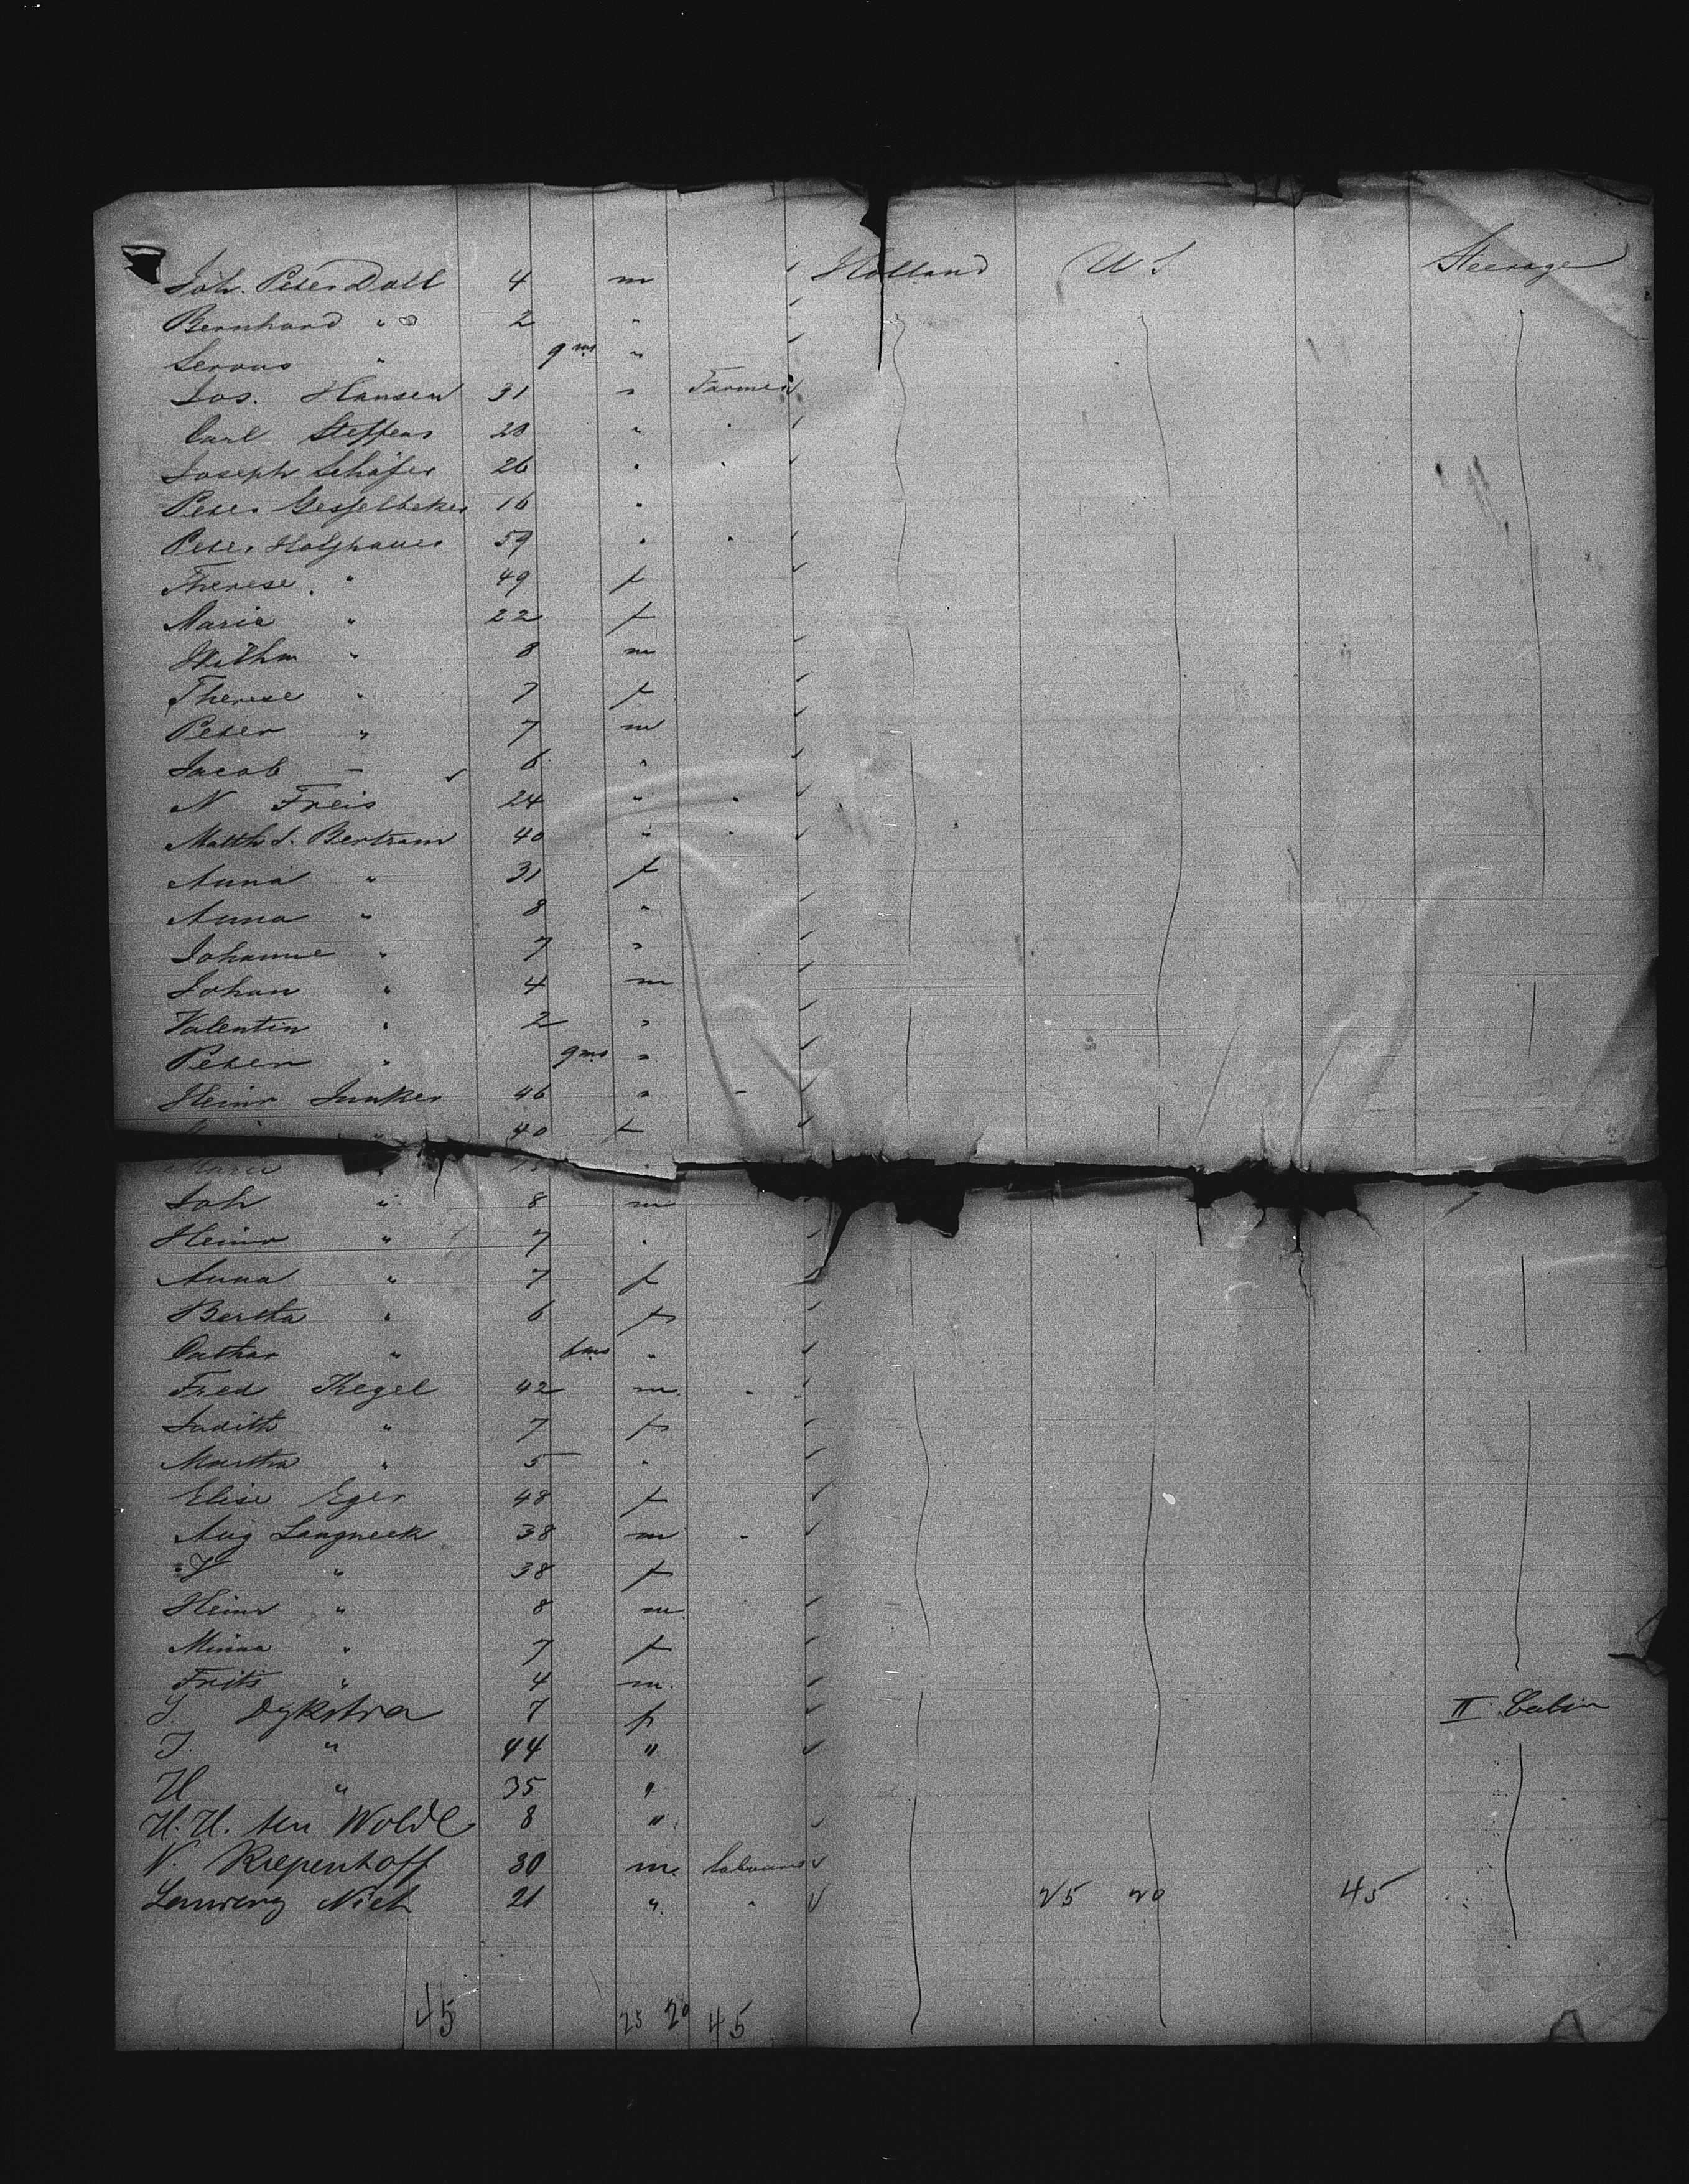 Joh. Peter Doll 4 m Holland U S Steerage
Bernhard " 2 "
Servus " 9 ms "
Jos. Hansen 31 " Farmer
Carl Steffens 28 " "
Joseph Schäfer 26 " "
Peter Gesselbeker 16 "
Peter Holzhauer 59 " "
Therese " 49 f
Maria " 22 f
Wilhm " 8 m
Therese " 7 f
Peter " 7 m
Jacob - 6 "
N Freis 24 " "
Matth J. Bertram 40 " "
Anna " 31 f
Anna " 8 "
Johanne " 7 "
Johan " 4 m
Valentin " 2 "
Peter " 9 ms "
Heinr Junker 46 " "
" 40 f
Maria "
Joh " 8 m
Heinr " 7 "
Anna " 7 f
Bertha " 6 f
Cathar " 6 ms "
Fred Kegel 42 m. "
Judith " 7 f
Martha " 5 "
Elise Eger 48 f
Aug Langneck 38 m "
" 38 f
Heinr " 8 m.
Minna " 7 f
Frits " 4 m.
S. Dykstra 7 f II Cabin
J. " 44 "
H " 35 "
H. H. ten Wolde 8 "
V. Riepenhoff 30 m.
Nieh 21 " " 25 20 45
45 25 20 45